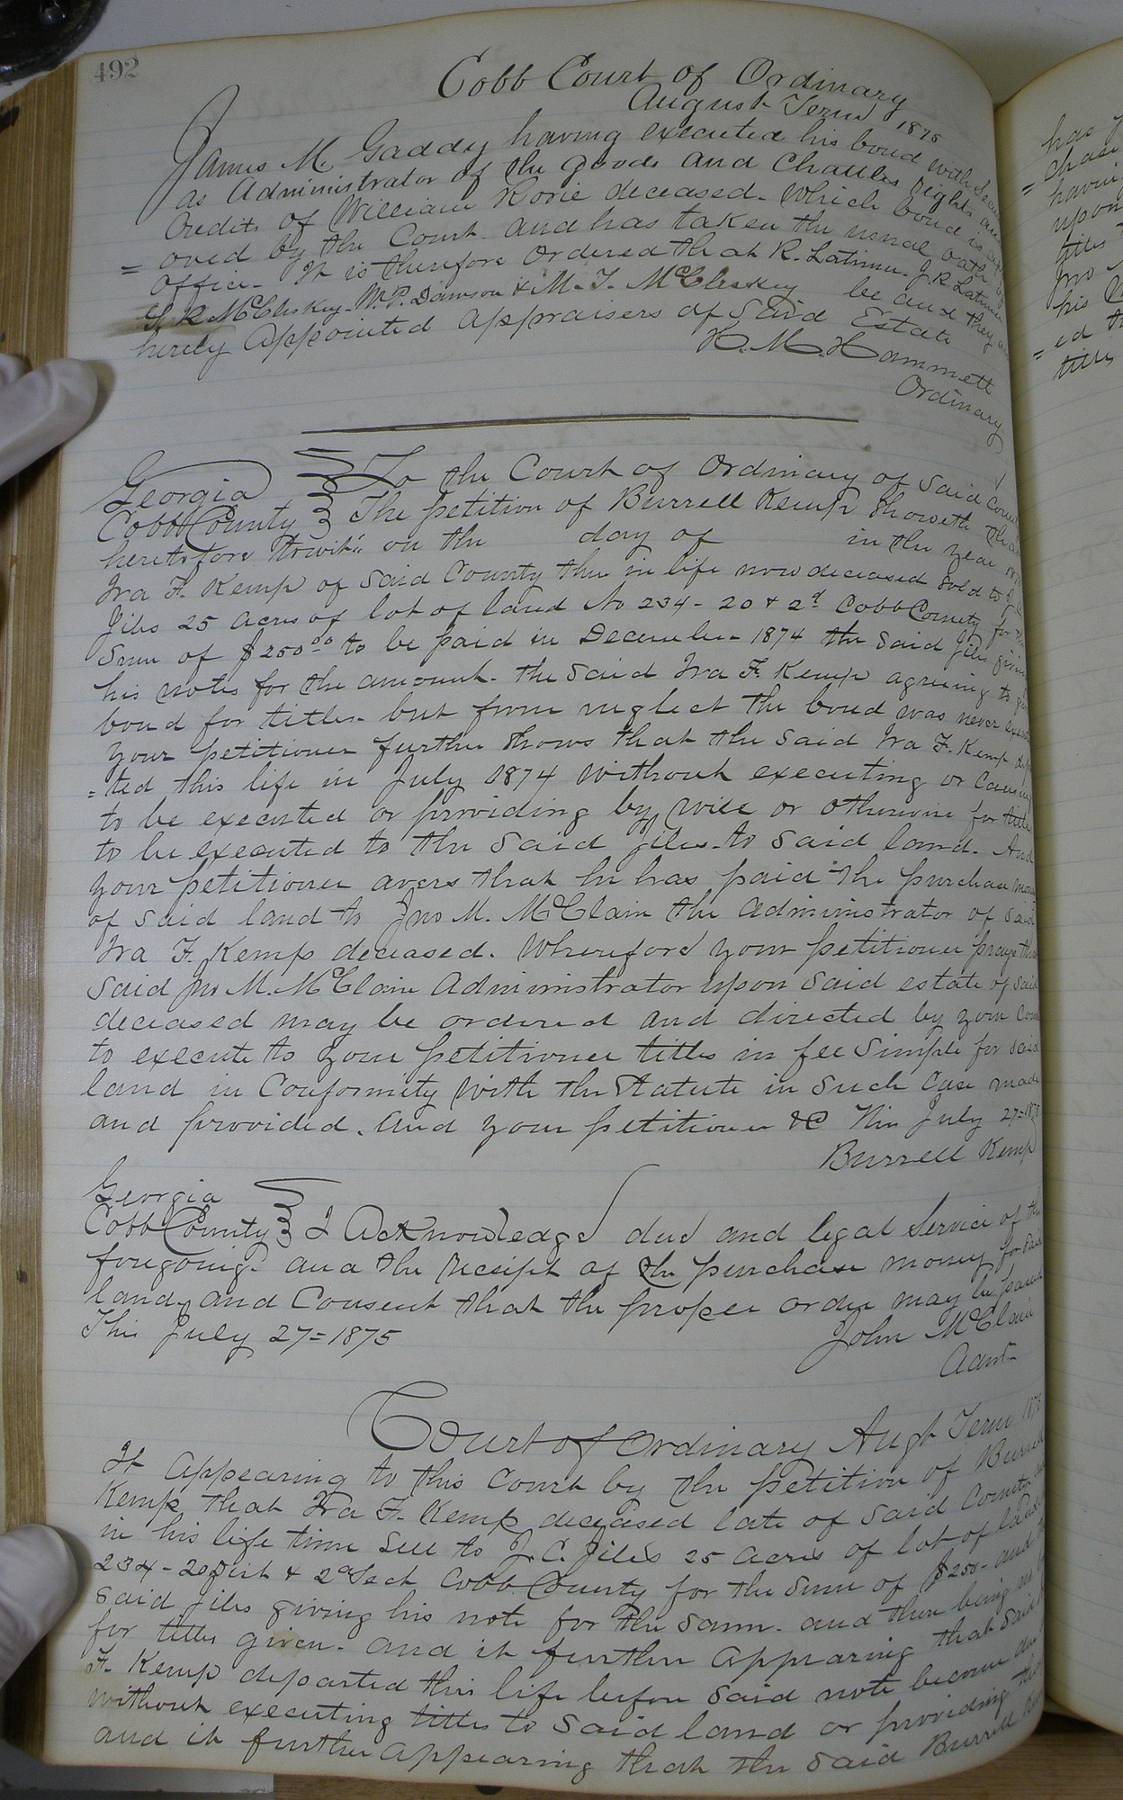 492
Cobb Court of Ordinary
August Term 1875
James M. Gaddy having executed his bond with
as Administrator of the goods and Chattles rights and
Credits of William Rorie deceased. Which bond is app
= oved by the Court and has taken the usual oath of
Office. It is therefore Ordered that R. Latimer. J. R. Latimer
G. R. McCleskey. W. P. Dawson & M. T. McCleskey be and they are
hereby Appointed Appraisers of Said Estate
H. M. Hammett
Ordinary
Georgia
Cobb County
To the Court of Ordinary of Said County
The petition of Burrell Kemp Showeth that
heretofore towit: on the day of in the year
Ira F. Kemp of Said County then in life now deceased Sold to
Jiles 25 Acres of lot of land No 234 - 20 & 2d Cobb County for the
Sum of $250.00 to be paid in December 1874 the Said Jiles giving
his notes for the amount. the Said Ira F. Kemp agreeing to
bond for titles. but from neglect the bond was never
your petitioner further Shows that the Said Ira F. Kemp dep
=ted this life in July 1874 Without executing or Causing
to be executed or providing by Will or otherwise for title
to be executed to the Said Jiles to Said land. And
your petitioner avers that he has paid the purchase money
of Said land to Jno M. McClain the Administrator of Said
Ira F. Kemp deceased. Wherefore your petitioner prays that
Said Jno M. McClain Administrator upon Said estate of Said
deceased may be ordered and directed by your Court
to execute to your petitioner titles in fee Simple for Said
land in Conformity With the Statute in Such Case made
and provided. And your petitioner &C This July 27=
Burrell Kemp
Georgia
Cobb County
I Acknowledge due and legal Service of the
foregoing. and the Receipt of the purchase money for Said
land, and Consent that the proper order may be passed
This July 27=1875
John McClain
Admr
Court of Ordinary Augt Term
It Appearing to this Court by the petition of Burrell
Kemp that Ira F. Kemp deceased late of Said County
in his life time Sell to J. C. Jiles 25 Acres of lot of land
234 - 20 Dist & 2d Sect Cobb County for the Sum of $250- and
Said Jiles giving his note for the Same. and there being no
for titles given. and it further Appearing that Said
F. Kemp departed this life before Said note became due
without executing titles to Said land or providing
and it further Appearing that the Said Burrell